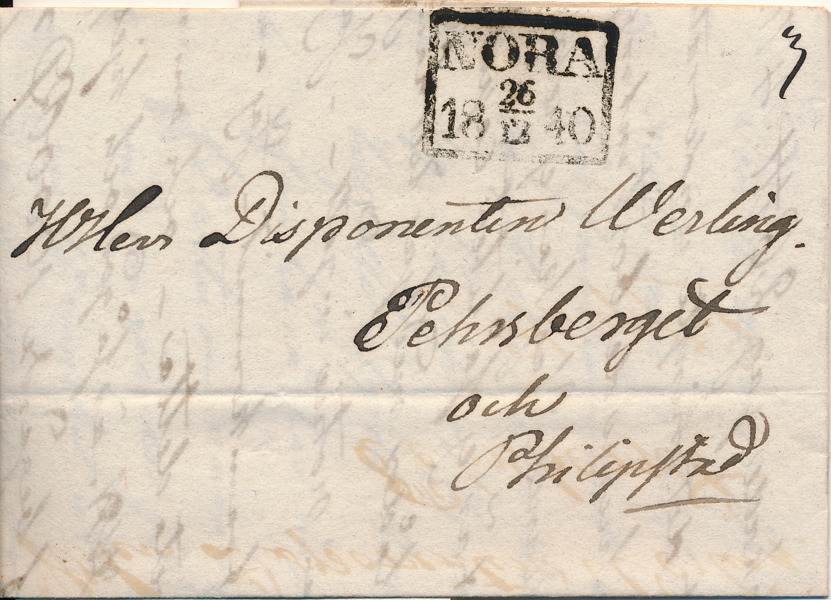 NORA
26
18 12 40
3
HHerr Disponenten Werling.
Pehrsberget
och
Philipstad